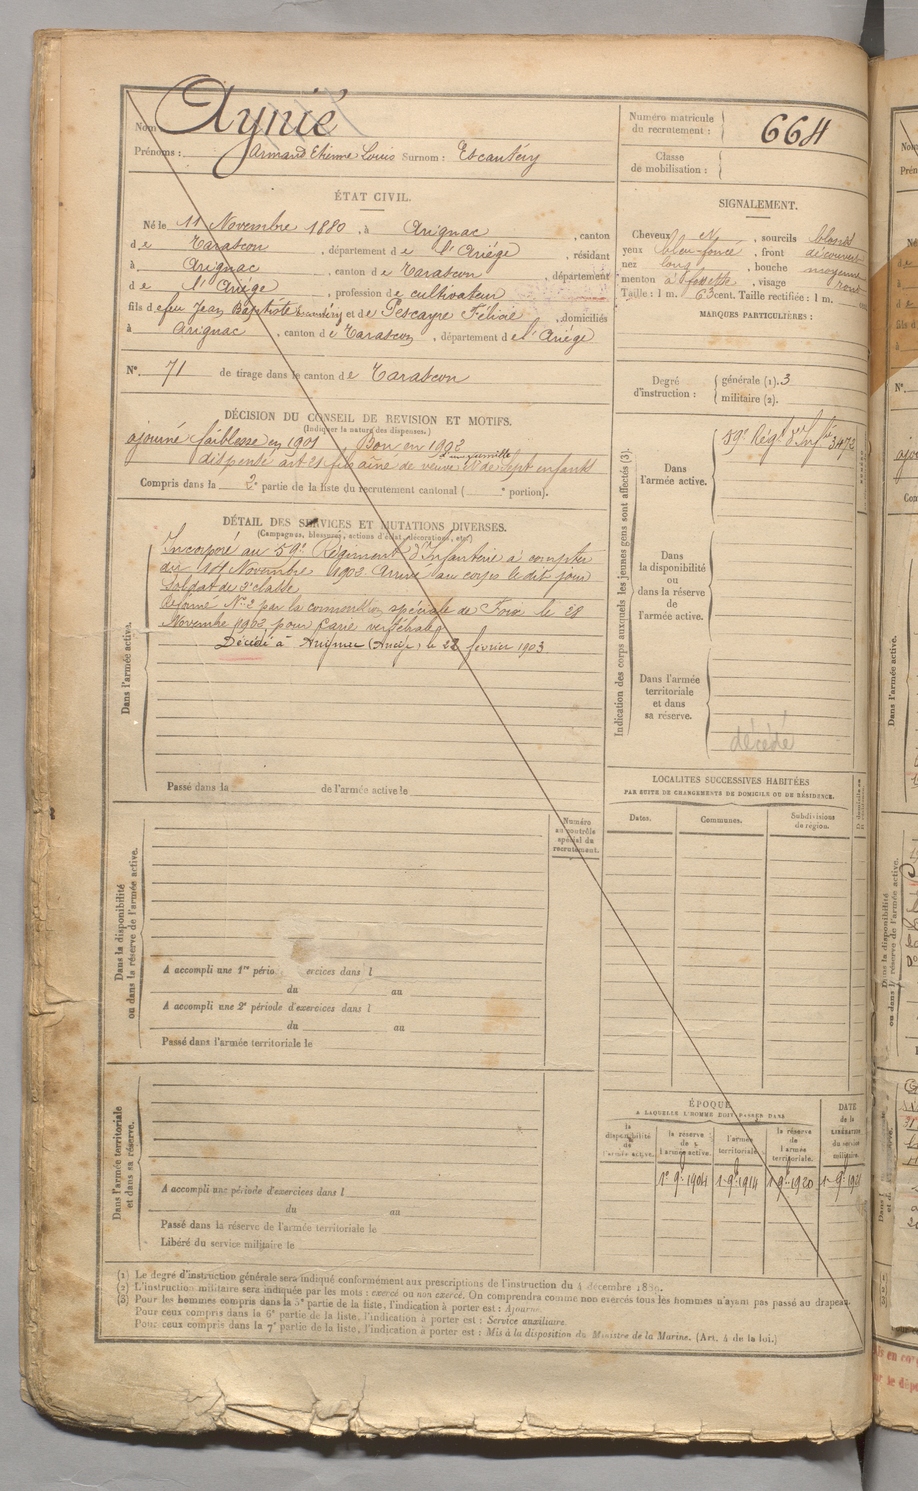 Nom Aynié
Prénoms : Armand Etienne Louis Surnom : Escantéry
Numéro matricule du recrutement : 664
Classe de mobilisation :
ÉTAT CIVIL.
Né le 11 Novembre 1880, à Arignac, canton
de Tarascon, département de l'Ariège, résidant
à Arignac, canton de Tarascon, département
de l'Ariège, profession de cultivateur
fils de feu Jean Baptiste et de Pescayre Félicie, domiciliés
à Arignac, canton de Tarascon, département de l'Ariège
N° 71 de tirage dans le canton de Tarascon
SIGNALEMENT.
Cheveux et, sourcils blonds
yeux bleu foncé, front découvert
nez long, bouche moyenne
menton à fossette, visage rond
Taille : 1 m. 63 cent. Taille rectifiée : 1 m. cent
MARQUES PARTICULIÈRES :
Degré d'instruction : générale (1). 3
militaire (2).
DÉCISION DU CONSEIL DE REVISION ET MOTIFS.
(Indiquer la nature des dispenses.)
ajourné faiblesse en 1901 Bon en 1902
dispensé art 21 fils aîné de veuve de sept enfants
Compris dans la 2e partie de la liste du recrutement cantonal ( e portion).
DÉTAIL DES SERVICES ET MUTATIONS DIVERSES.
(Campagnes, blessures, actions d'éclat, décorations, etc.)
Dans l'armée active.
Incorporé au 59e Régiment d'Infanterie à compter
du 14 Novembre 1902. Arrivé au corps le dit jour
Soldat de 2e classe
Réformé No 2 par la commission spéciale de Foix le 28
Novembre 1902 pour Carie vertébrale
Décédé à Arignac (Ariège) le 22 février 1903
Passé dans la de l'armée active le
Indication des corps auxquels les jeunes gens sont affectés (3).
Dans l'armée active.
59e Régt d'Infrie 3473
Dans la disponibilité ou dans la réserve de l'armée active.
Dans l'armée territoriale et dans sa réserve.
décédé
LOCALITÉS SUCCESSIVES HABITÉES
PAR SUITE DE CHANGEMENTS DE DOMICILE OU DE RÉSIDENCE.
Dates. Communes. Subdivisions de région.
Dans la disponibilité ou dans la réserve de l'armée active.
Numéro au contrôle spécial du recrutement.
A accompli une 1re pério ercices dans l
du au
A accompli une 2e période d'exercices dans l
du au
Passé dans l'armée territoriale le
Dans l'armée territoriale et dans sa réserve.
A accompli une période d'exercices dans l
du au
Passé dans la réserve de l'armée territoriale le
Libéré du service militaire le
ÉPOQUE
A LAQUELLE L'HOMME DOIT PASSER DANS
la disponibilité de l'armée active.
la réserve de l'armée active.
l'armée territoriale.
la réserve de l'armée territoriale.
DATE de la LIBÉRATION du service militaire.
1er 9bre 1904 1er 9bre 1914 1er 9bre 1920
(1) Le degré d'instruction générale sera indiqué conformément aux prescriptions de l'instruction du 4 décembre 1889.
(2) L'instruction militaire sera indiquée par les mots : exercé ou non exercé. On comprendra comme non exercés tous les hommes n'ayant pas passé au drapeau.
(3) Pour les hommes compris dans la 5e partie de la liste, l'indication à porter est : Ajourné.
Pour ceux compris dans la 6e partie de la liste, l'indication à porter est : Service auxiliaire.
Pour ceux compris dans la 7e partie de la liste, l'indication à porter est : Mis à la disposition du Ministre de la Marine. (Art. 4 de la loi.)